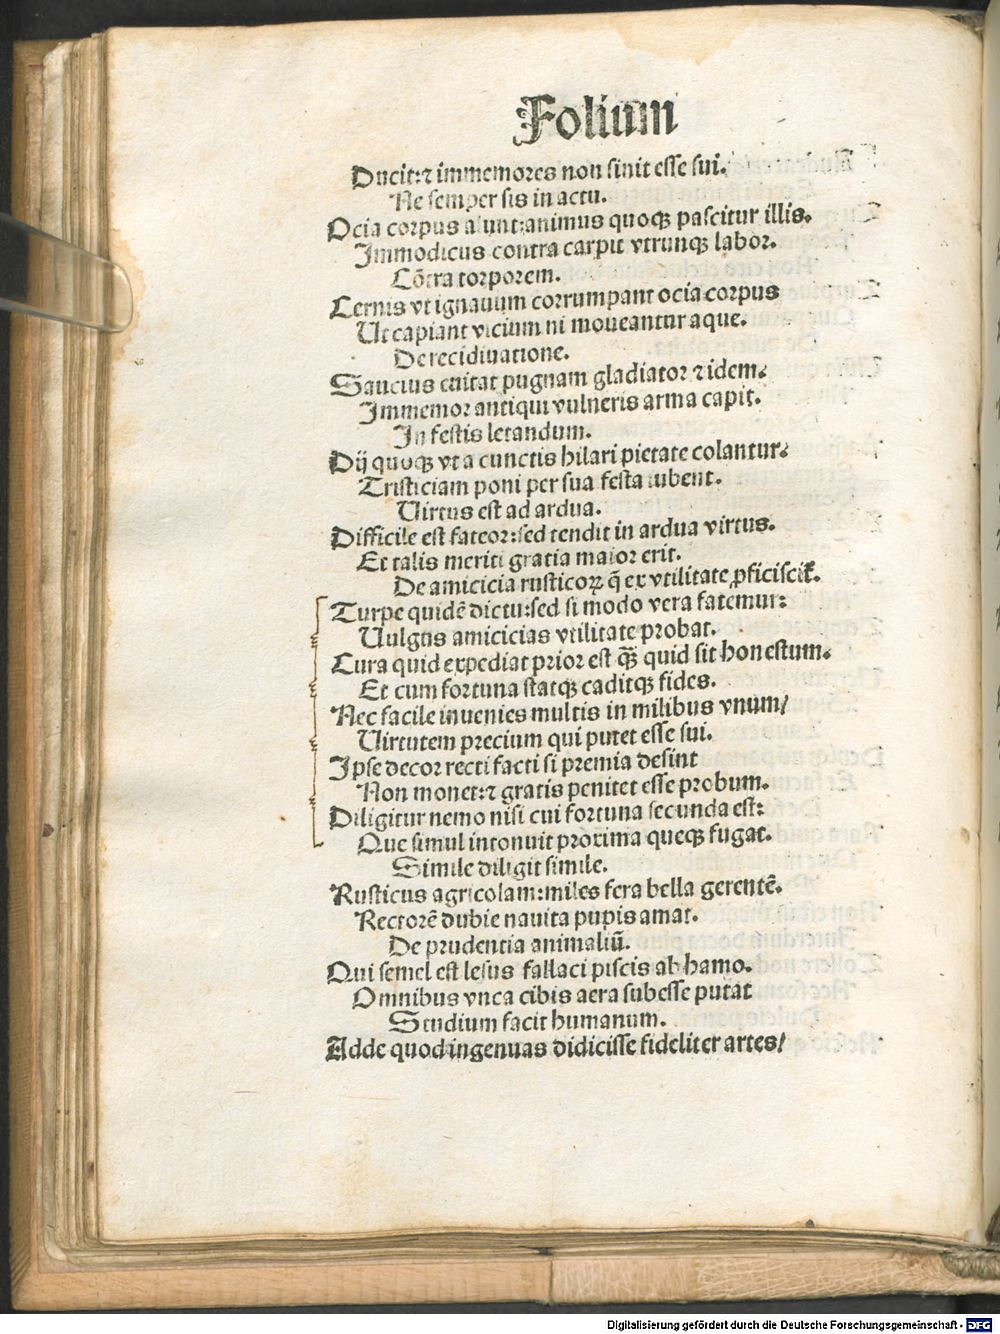 Folium
Ducit:⁊ immemores non sinit esse sui.
Ne semper sis in actu.
Ocia corpus alunt:animus quoqꝫ pascitur illis.
Immodicus contra carpit vtrunqꝫ labor.
Cōtra torporem.
Cernis vt ignauum corrumpant ocia corpus
Ut capiant vicium ni moueantur aque.
De recidiuatione.
Saucius euitat pugnam gladiator ⁊ idem/
Immemor antiqui vulneris arma capit.
In festis letandum.
Dij quoqꝫ vt a cunctis hilari pietate colantur/
Tristiciam poni per sua festa iubent.
Uirtus est ad ardua.
Difficile est fateor:sed tendit in ardua virtus.
Et talis meriti gratia maior erit.
De amicicia rusticoꝝ q̄ ex vtilitate ꝓficiscit᷑.
Turpe quidē dictu:sed si modo vera fatemur:
Uulgus amicicias vtilitate probat.
Cura quid expediat prior est qꝫ̄ quid sit honestum.
Et cum fortuna statqꝫ caditqꝫ fides.
Nec facile inuenies multis in milibus vnum/
Uirtutem precium qui putet esse sui.
Ipse decor recti facti si premia desint
Non monet:⁊ gratis penitet esse probum.
Diligitur nemo nisi cui fortuna secunda est:
Que simul intonuit proxima queqꝫ fugat.
Simile diligit simile.
Rusticus agricolam:miles fera bella gerentē.
Rectorē dubie nauita pupis amat.
De prudentia animaliū.
Qui semel est lesus fallaci piscis ab hamo.
Omnibus vnca cibis aera subesse putat
Studium facit humanum.
Adde quod ingenuas didicisse fideliter artes/
Digitalisierung gefördert durch die Deutsche Forschungsgemeinschaft - DFG